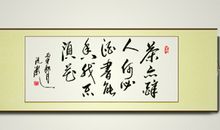 茶亦醉
人何必
酒書能
香我不
須花